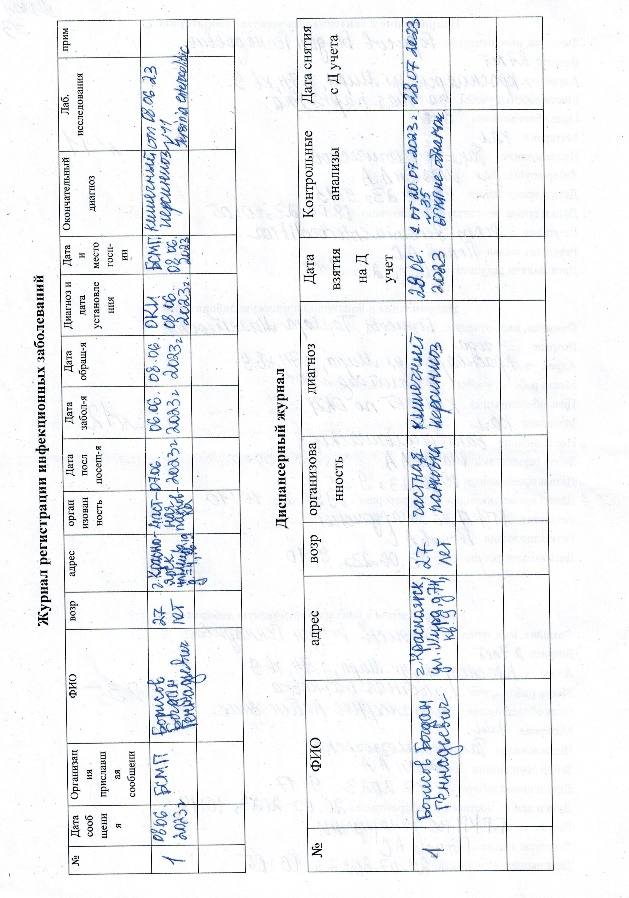 Журнал регистрации инфекционных заболеваний
№
Дата
сооб
щени
я
Организац
ия
приславш
ая
сообщени
ФИО
возр
адрес
орган
изован
ность
Дата
посл
посет-я
Дата
забол-я
Дата
обращ-я
Диагноз и
дата
установле
ния
Дата
и
место
госп-
ии
Окончательный
диагноз
Лаб.
исследования
прим
1
08.06.
2023г
БСМП
Борисов
Богдан
Геннадьевич
27
лет
г. Красно-
ярск,
част-
ная
парков-
ка
07.06.
2023г
06.06.
2023г
08.06.
2023г
ОКИ
08.06.
2023г.
БСМП,
08.06.
2023
кишечный
иерсиниоз
от 08.06.23
№11
Диспансерный журнал
№
ФИО
адрес
возр
организова
нность
диагноз
Дата
взятия
на Д
учет
Контрольные
анализы
Дата снятия
с Д учета
1
Борисов Богдан
Геннадьевич
г. Красноярск,
ул. Мира, д 74,
кв. 9
27
лет
частная
парковка
кишечный
иерсиниоз
28.06.
2023
от 20.07.2023г
№35
28.07.2023